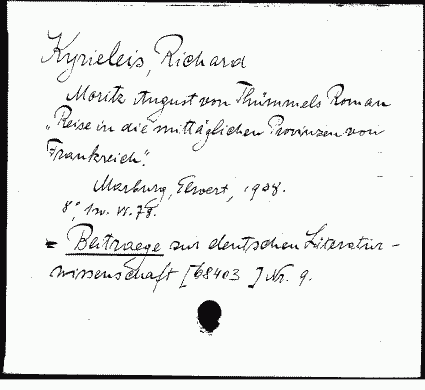 Kyrieleis, Richard
Moritz August von Thümmels Roman
„Reise in die mittäglichen Provinzen von
Frankreich“.
Marburg, Elwert, 1908.
8°, VI. 78.
= Beitraege zur deutschen Literatur-
wissenschaft [68403 ] Nr. 9.